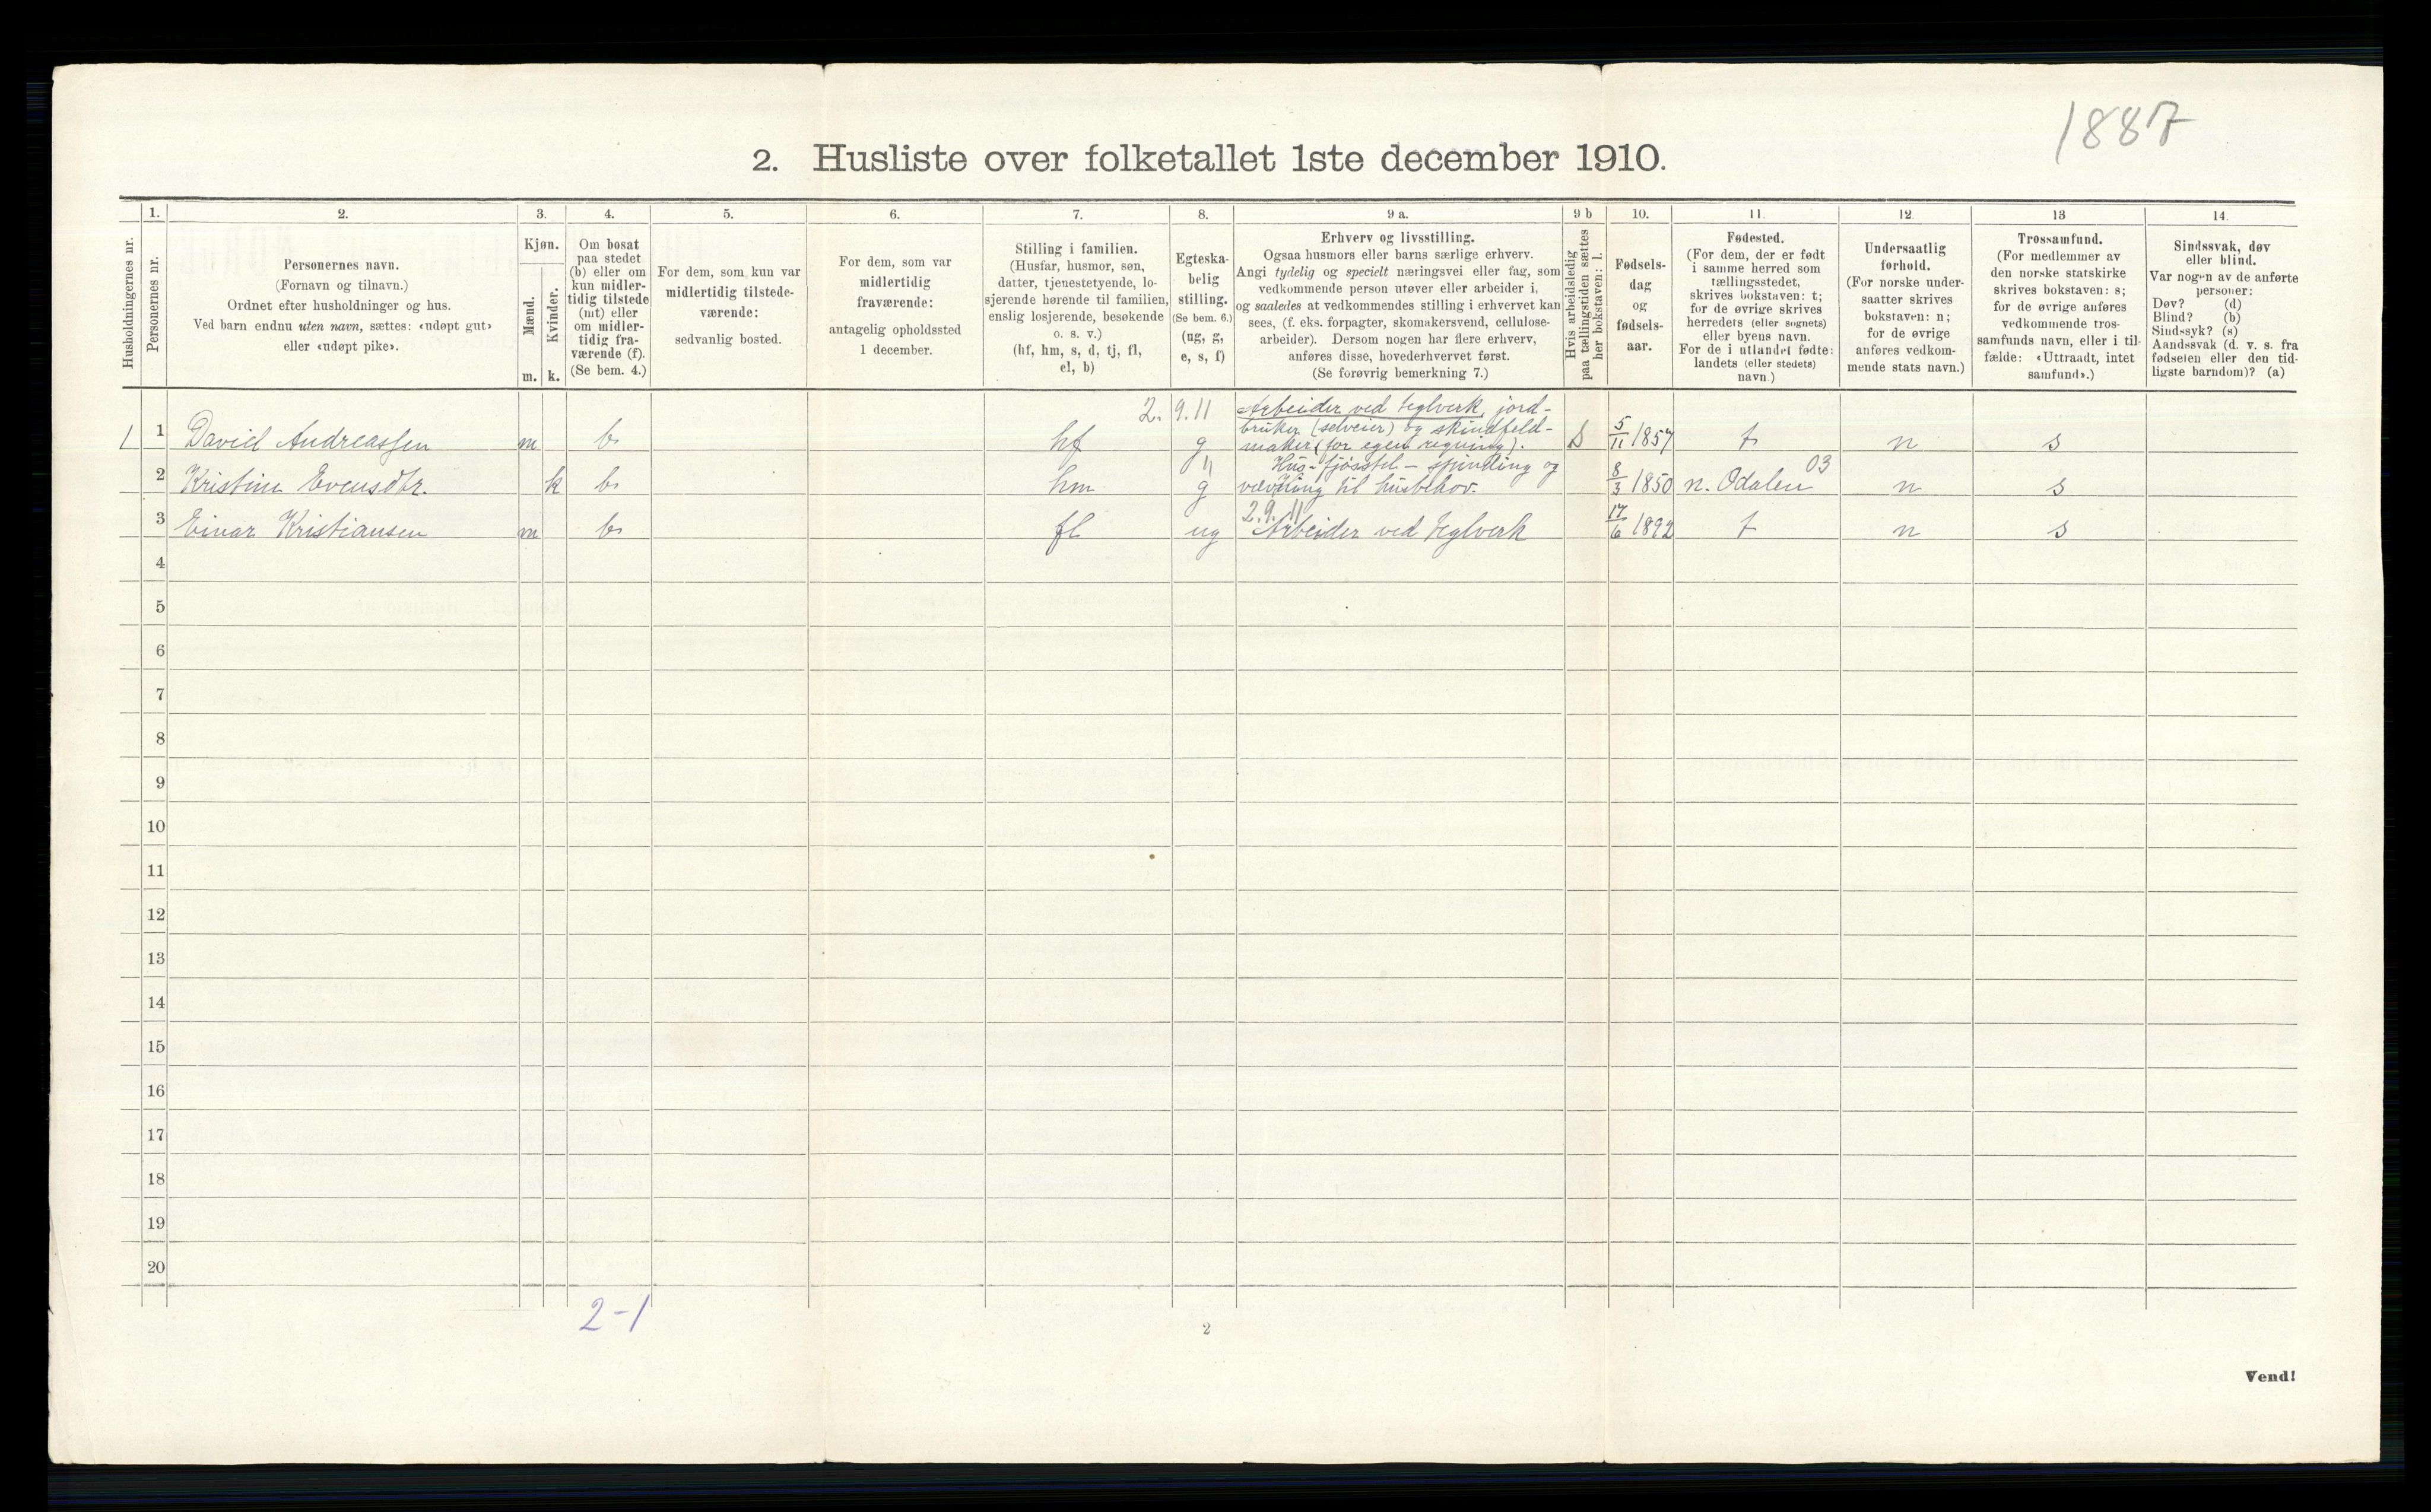 1887
2. Husliste over folketallet 1ste december 1910.
Husholdningernes nr.
1.
Personernes nr.
2.
Personernes navn.
(Fornavn og tilnavn.)
Ordnet efter husholdninger og hus.
Ved barn endnu uten navn, sættes: «udøpt gut»
eller «udøpt pike».
3.
Kjøn.
Mænd.
Kvinder.
m. k.
4.
Om bosat
paa stedet
(b) eller om
kun midler-
tidig tilstede
(mt) eller
om midler-
tidig fra-
værende (f).
(Se bem. 4.)
5.
For dem, som kun var
midlertidig tilstede-
værende:
sedvanlig bosted.
6.
For dem, som var
midlertidig
fraværende:
antagelig opholdssted
1 december.
7.
Stilling i familien.
(Husfar, husmor, søn,
datter, tjenestetyende, lo-
sjerende hørende til familien,
enslig losjerende, besøkende
o. s. v.)
(hf, hm, s, d, tj, fl,
el, b)
8.
Egteska-
belig
stilling.
(Se bem. 6.)
(ug, g,
e, s, f)
9 a.
Erhverv og livsstilling.
Ogsaa husmors eller barns særlige erhverv.
Angi tydelig og specielt næringsvei eller fag, som
vedkommende person utøver eller arbeider i,
og saaledes at vedkommendes stilling i erhvervet kan
sees, (f. eks. forpagter, skomakersvend, cellulose-
arbeider). Dersom nogen har flere erhverv,
anføres disse, hovederhvervet først.
(Se forøvrig bemerkning 7.)
9 b
Hvis arbeidsledig
paa tællingstiden sættes
her bokstaven: l.
10.
Fødsels-
dag
og
fødsels-
aar.
11.
Fødested.
(For dem, der er født
i samme herred som
tællingsstedet,
skrives bokstaven: t;
for de øvrige skrives
herredets (eller sognets)
eller byens navn.
For de i utlandet fødte:
landets (eller stedets)
navn.)
12.
Undersaatlig
forhold.
(For norske under-
saatter skrives
bokstaven: n;
for de øvrige
anføres vedkom-
mende stats navn.)
13
Trossamfund.
(For medlemmer av
den norske statskirke
skrives bokstaven: s;
for de øvrige anføres
vedkommende tros-
samfunds navn, eller i til-
fælde: «Uttraadt, intet
samfund».)
14.
Sindssvak, døv
eller blind.
Var nogen av de anførte
personer:
Døv? (d)
Blind? (b)
Sindssyk? (s)
Aandssvak (d. v. s. fra
fødselen eller den tid-
ligste barndom)? (a)
2. 9. 11
Arbeider ved teglverk, jord-
bruker (selveier) og skindfeld-
1 1 David Andreassen m b hf g maker (for egen regning). 5/11 1857 t n s
Hus- fjøsstel - spinding og 03
2 Kristine Evensdtr. k b hm g vævning til husbehov. 8/3 1850 n. Odalen n s
2.9.11
3 Einar Kristiansen m b fl ug Arbeider ved teglverk 17/6 1892 t n s
4
5
6
7
8
9
10
11
12
13
14
15
16
17
18
19
20
2-1
2
Vend!